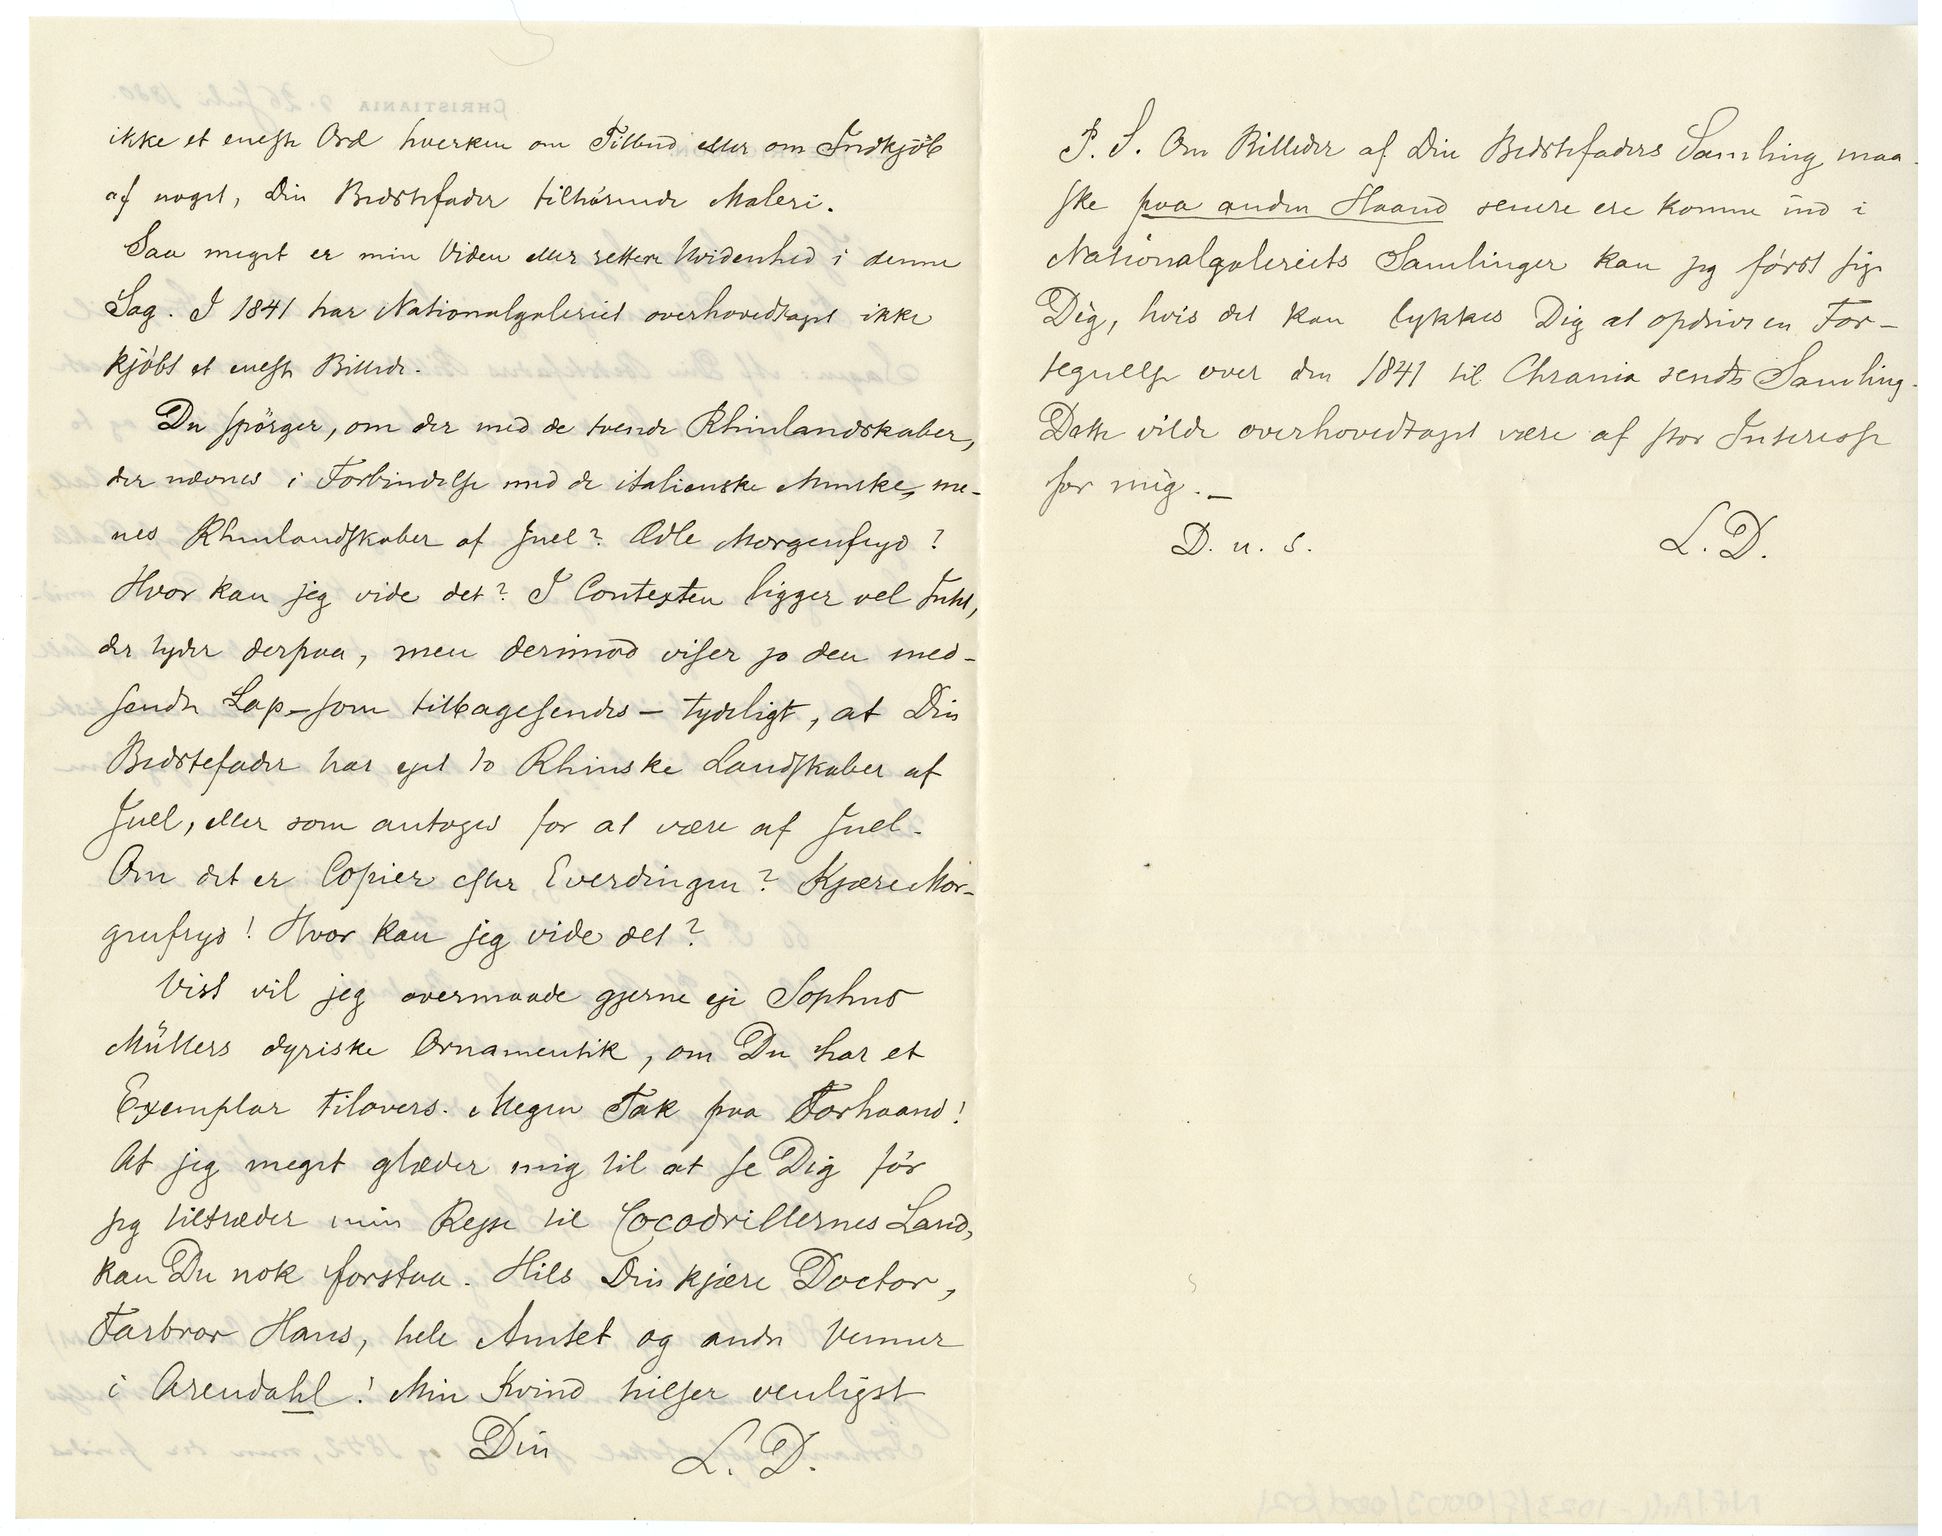 ikke et eneste Ord hverken om Tilbud eller om Indkjöb
af noget, Din Bedstefader tilhörende Maleri.
Saa meget er min Viden eller rettere Uvidenhed i denne
Sag. I 1841 har Nationalgaleriet overhovedtaget ikke
kjöbt et eneste Billede.
Du spörger, om der med de tvende Rhinlandskaber,
der nævnes i Forbindelse med de italienske Munke, me-
nes Rhinlandskaber af Juel? Ædle Morgenfryd?
Hvor kan jeg vide det? I Contexten ligger vel Intet,
der tyder derpaa, men derimod viser jo den med-
sendte Lap – som tilbagesendes – tydeligt, at Din
Bedstefader har ejet to Rhinske Landskaber af
Juel, eller som antoges for at være af Juel.
Om det er Copier efter Everdingen? Kjære Mor-
genfryd! Hvor kan jeg vide det?
Vist vil jeg overmaade gjerne eje Sophus
Müllers dyriske Ornamentik, om Du har et
Exemplar tilovers. Megen Tak paa Forhaand!
At jeg meget glæder mig til at se Dig för
jeg tiltræder min Rejse til Cocodrillernes Land,
kan Du nok forstaa. Hils Din kjære Doctor,
Farbror Hans, hele Amtet og andre Venner
i Arendahl! Min Kvind hilser venligst
Din L. D.
P. S. Om Billeder af Din Bedstefaders Samling maa-
ske paa anden Haand senere ere komne ind i
Nationalgaleriets Samlinger kan jeg först sige
Dig, hvis det kan lykkes Dig at opdrive en For-
tegnelse over den 1841 til Chrania sendte Samling.
Dette vilde overhovedtaget være af stor Interesse
for mig. –
D. u. S. L. D.